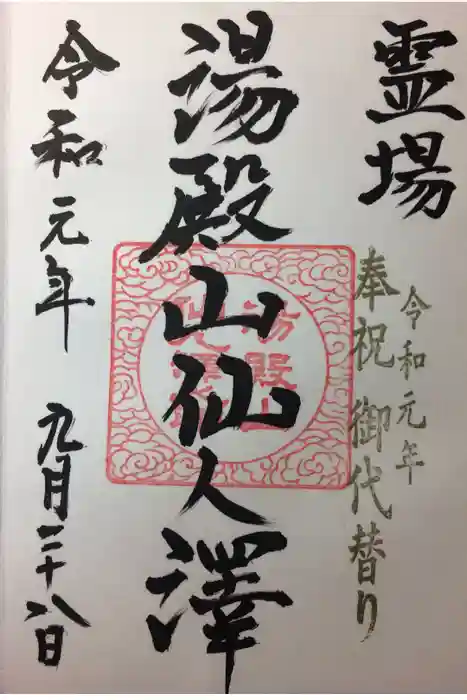 霊場
令和元年
奉祝 御代替り
湯殿山仙人澤
令和元年 九月二十八日